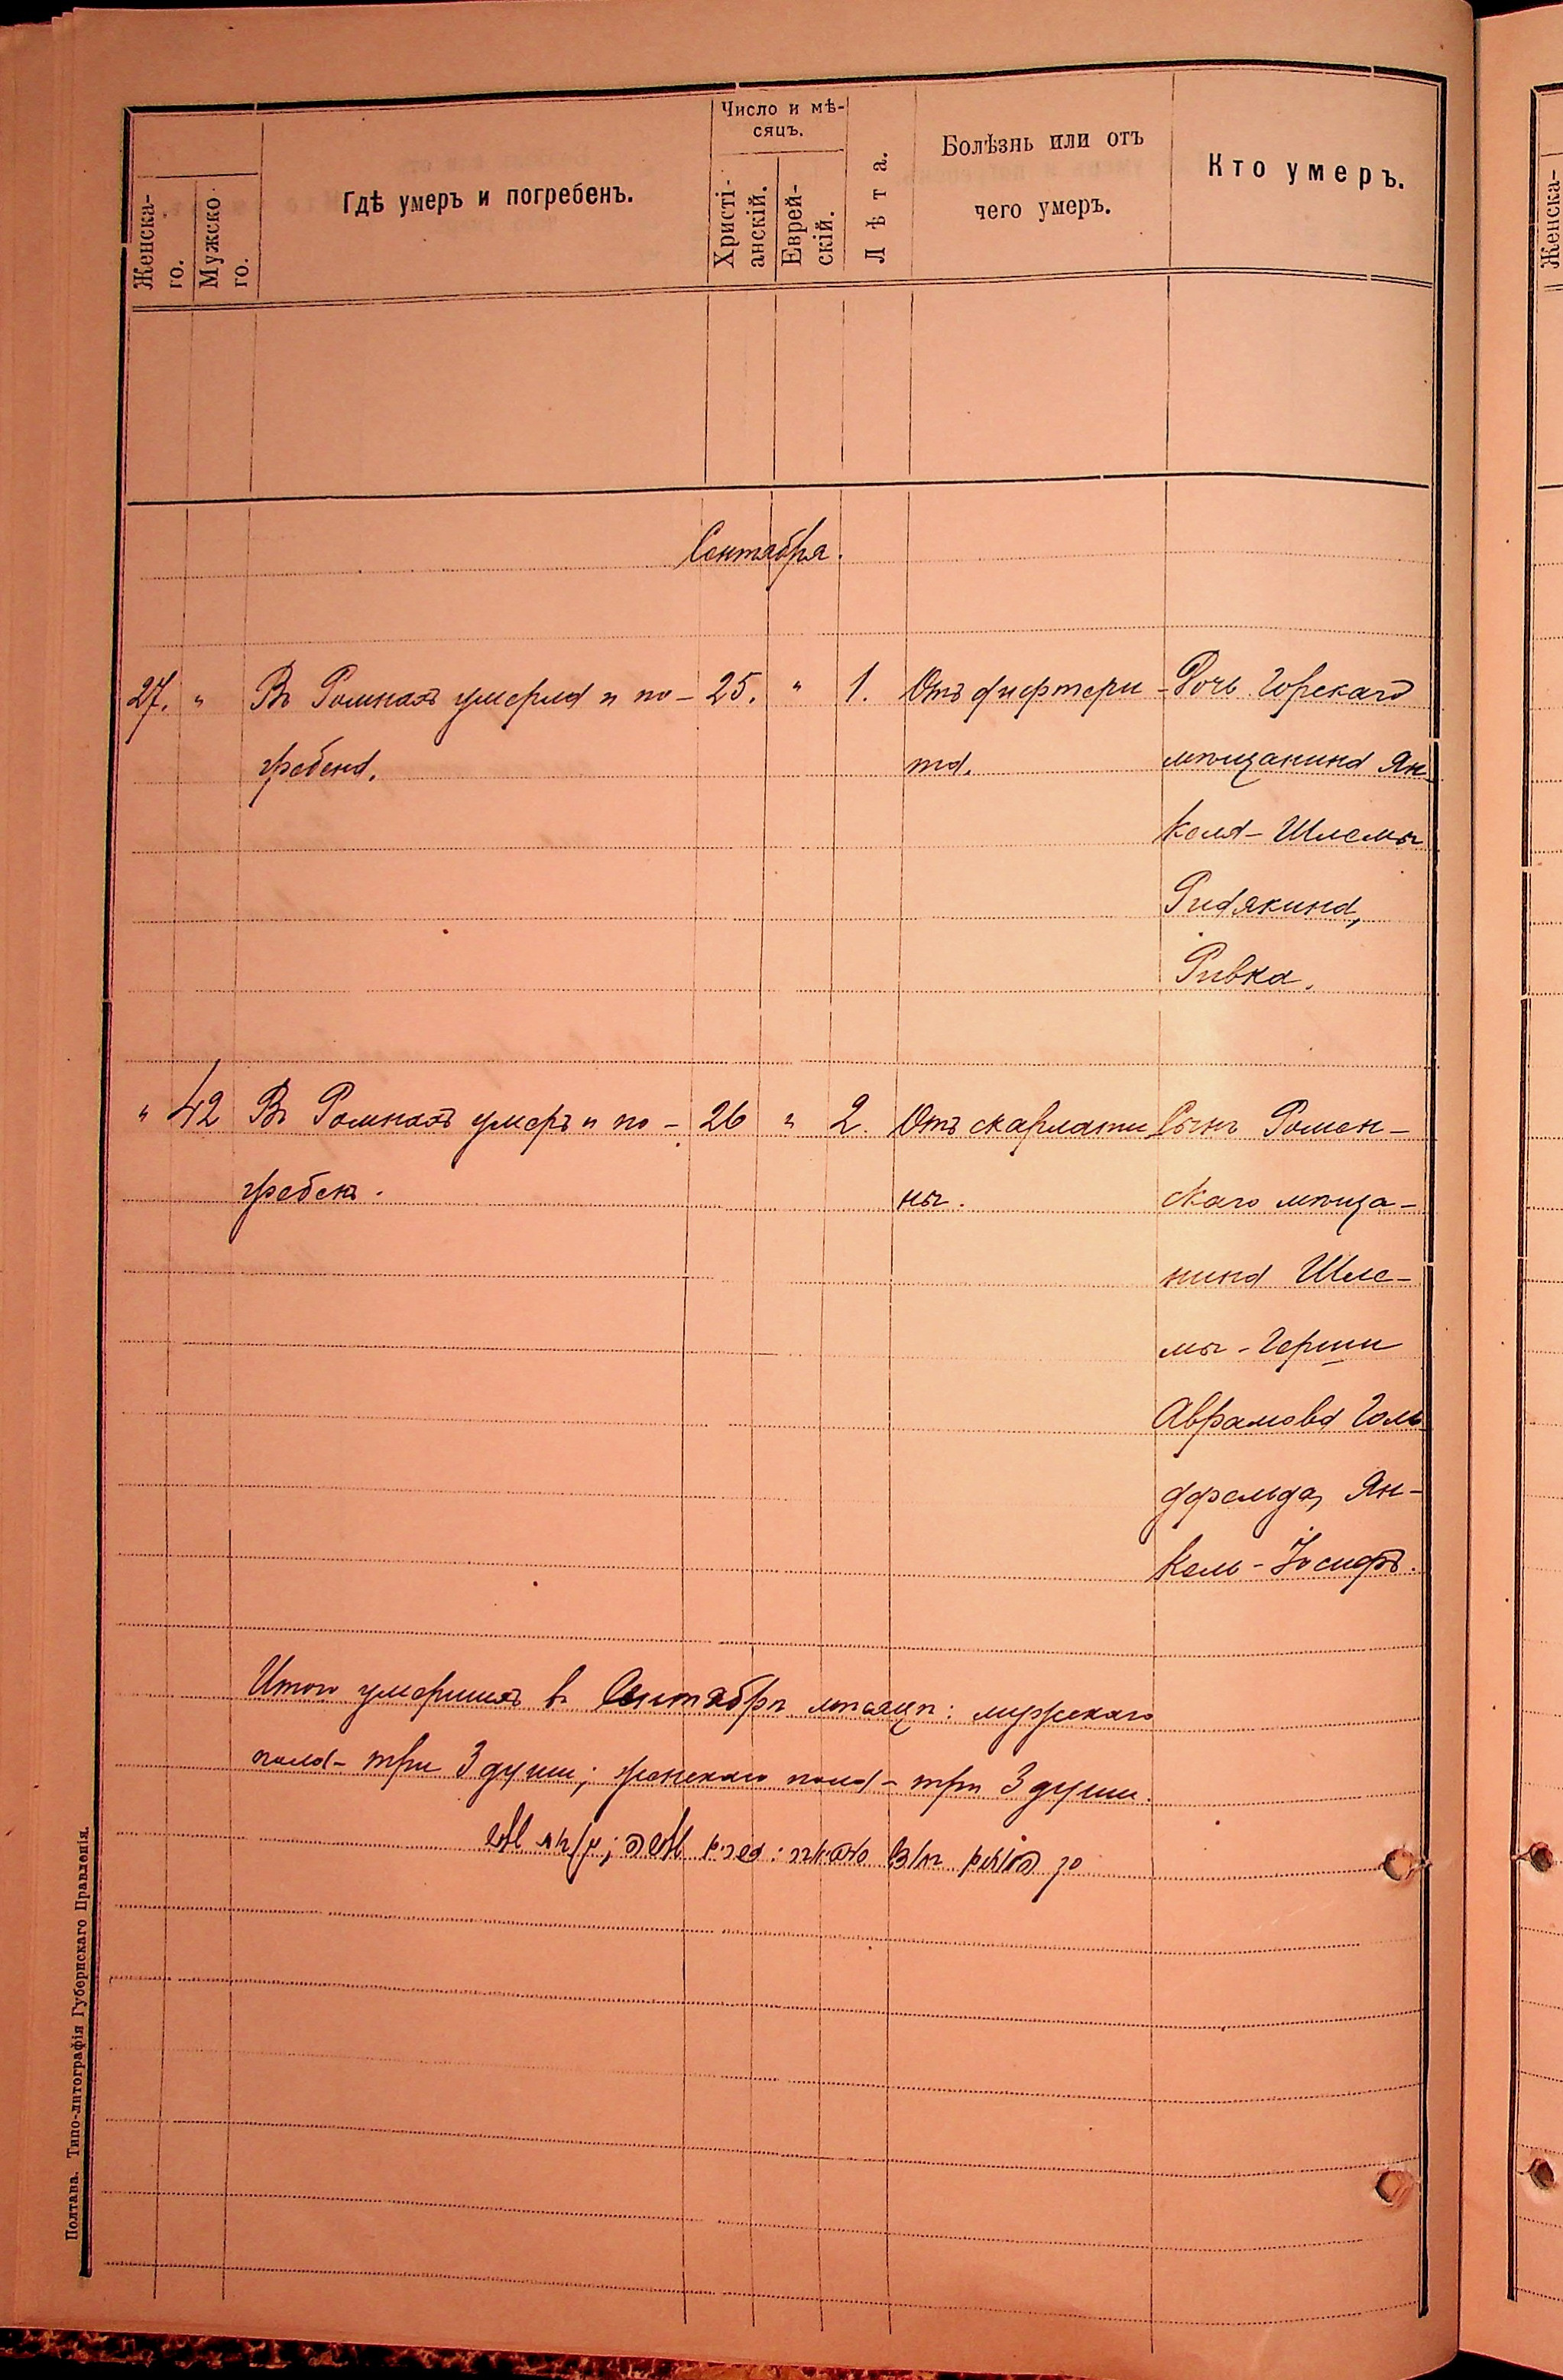 Число и мѣ-
сяцъ.
Женска-
го.
Мужско-
го.
Гдѣ умеръ и погребенъ.
Христі-
анскій.
Еврей-
скій.
Лѣта.
Болѣзнь или отъ
чего умеръ.
Кто умеръ.
Сентября.
27. " Въ Ромнахъ умерла и по- 25. " 1. Отъ дифтери- Дочь Горскаго
гребена. та. мѣщанина Ян-
келя-Шлемы
Ривка.
" 42 Въ Ромнахъ умеръ и по- 26 " 2. Отъ скарлати Сынъ Ромен-
гребенъ. ны. скаго мѣща-
нина Шле-
мы-Герши
Абрамова Голь
дфельда, Ян-
кель-Іосифъ.
Итого умершихъ въ Сентябрѣ мѣсяцѣ: мужскаго
пола- три 3 души; женскаго пола- три 3 души.
Полтава. Типо-литографія Губернскаго Правленія.
Женска-